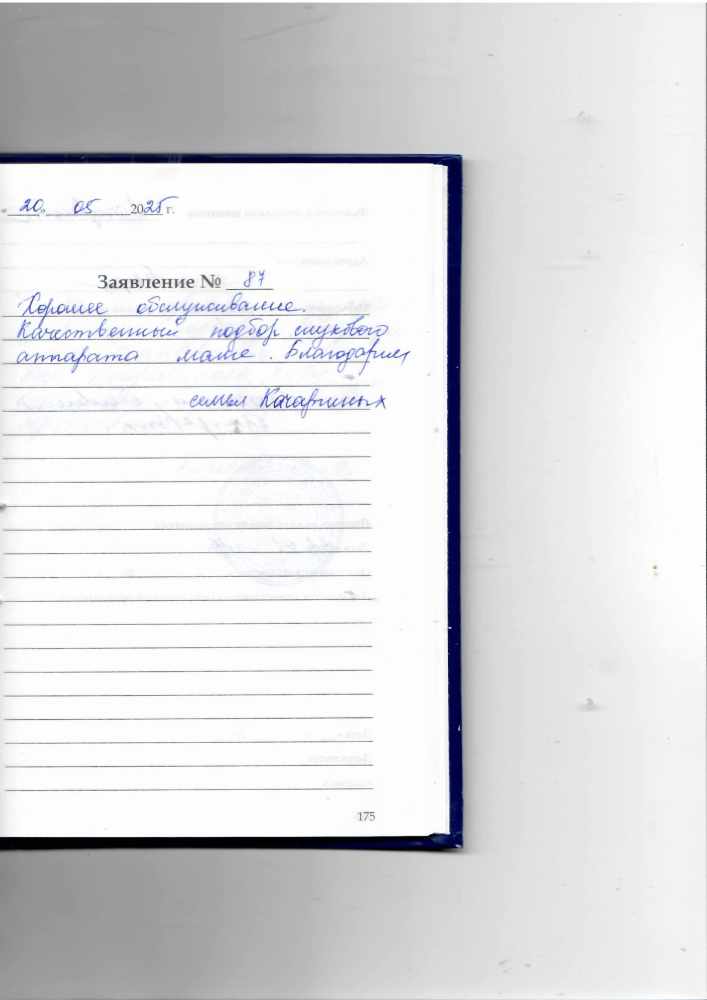 20. 05 2025 г.
Заявление № 87
Хорошее обслуживание.
Качественный подбор слухового
аппарата маме. Благодарим,
семья
175